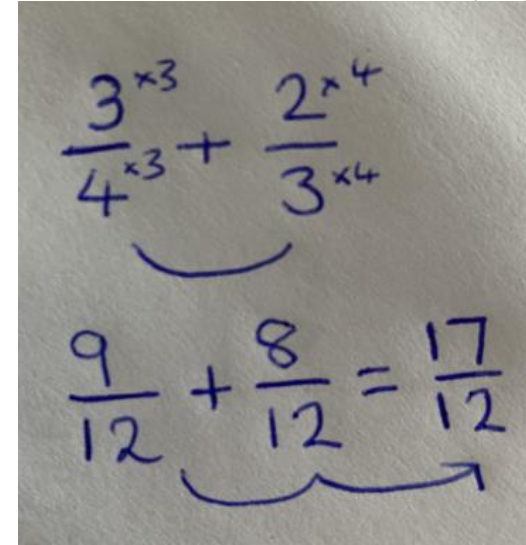 3^×3/4^×3 + 2^×4/3^×4
9/12 + 8/12 = 17/12